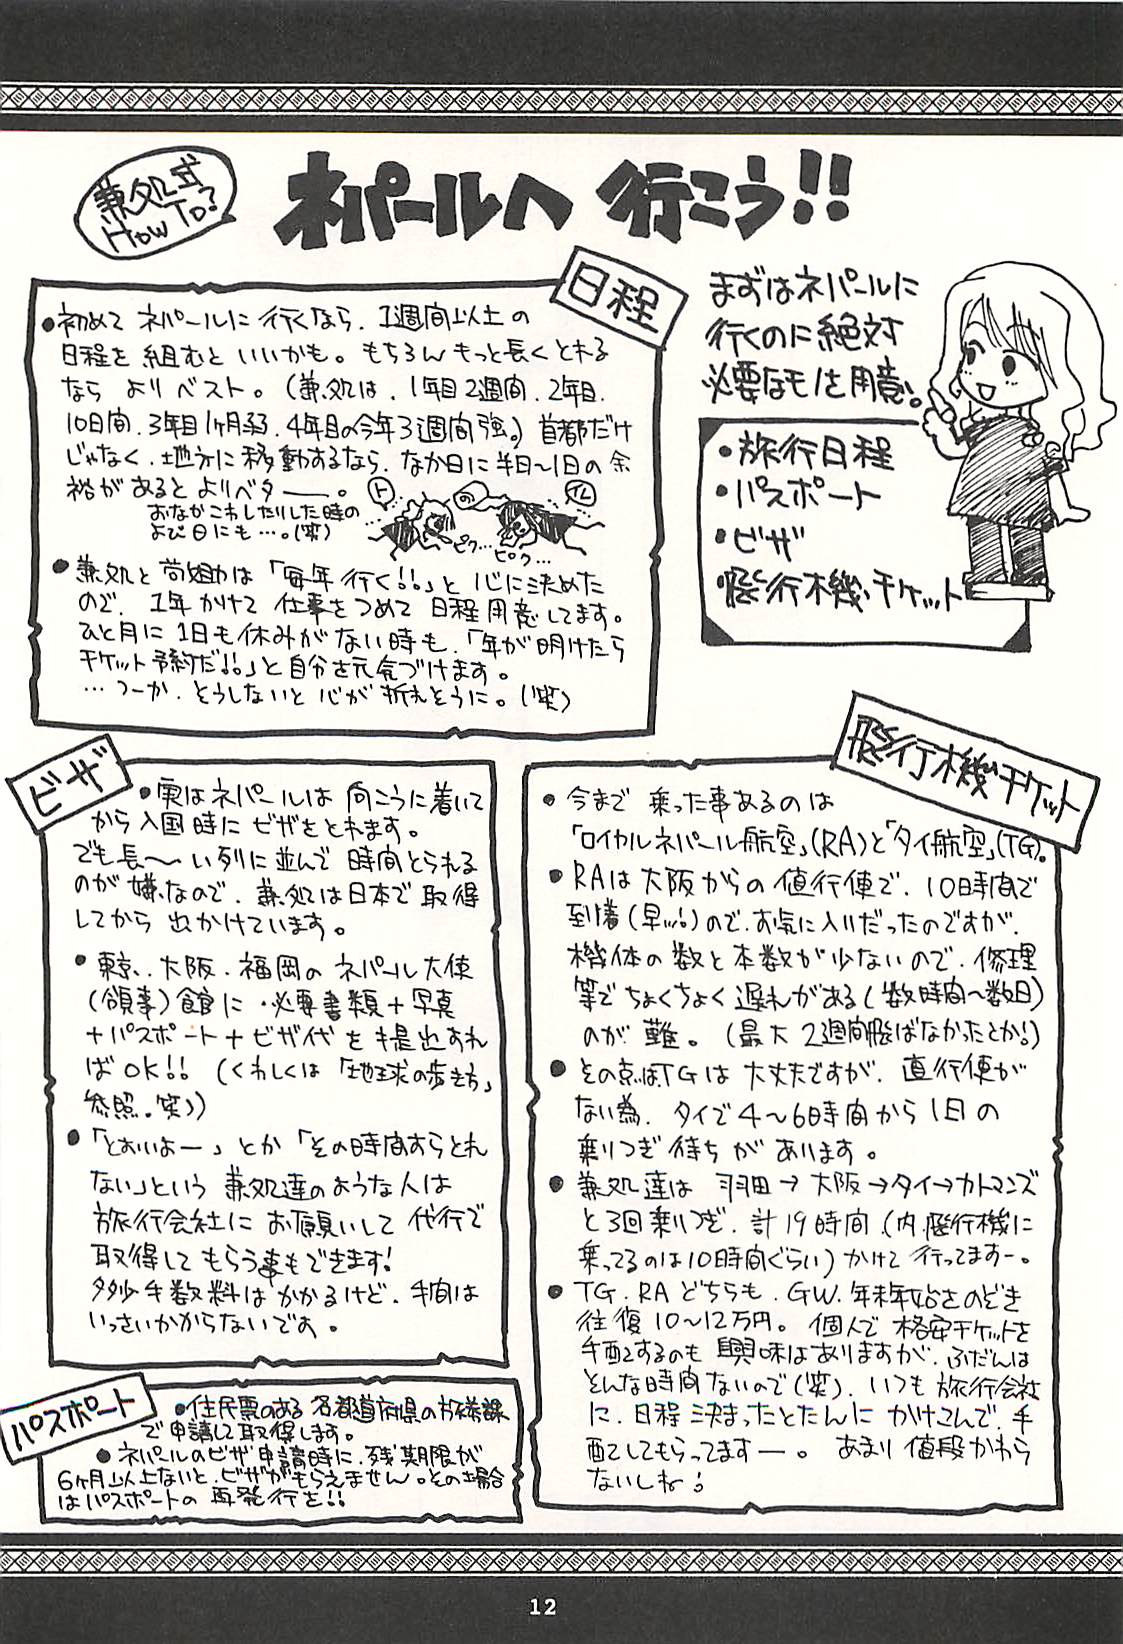 兼処式
HOW TO?
ネパールへ 行こう!!
まずはネパールに
行くのに絶対
必要なモノを用意。
・旅行日程
・パスポート
・ビザ
・飛行機チケット
日程
●初めて ネパールに 行くなら、1週間以上の
日程を 組むと いいかも。もちろん もっと長く とれる
なら よりベスト。(兼処は、1年目2週間、2年目、
10日間、3年目1ヶ月弱、4年目の今年3週間強。) 首都だけ
じゃなく、地方に移動するなら、なか日に半日〜1日の余
裕があると よりベター。
おなかこわしたりした時の
よび日にも…。(笑)
ト
の
イレ
ピク…
ピク…
●兼処と は「毎年 行く!!」と 心に決めた
ので、1年かけて 仕事をつめて 日程用意してます。
ひと月に 1日も休みがない時も、「年が明けたら
チケット予約だ!!」と自分を元気づけます。
…つーか、そうしないと 心が 折れそうに。(笑)
ビザ
●実はネパールは 向こうに着いて
から入国時に ビザをとれます。
でも長〜い列に並んで 時間とられる
のが嫌なので、兼処は日本で取得
してから 出かけています。
●東京、大阪、福岡の ネパール大使
(領事)館に 必要書類+写真
+パスポート+ビザ代を 提出すれ
ば OK!! (くわしくは「地球の歩き方」
参照。笑))
●「とおいよー」とか「その時間すらとれ
ない」という 兼処達のような人は
旅行会社に お願いして 代行で
取得して もらう事もできます!
多少手数料は かかるけど、手間は
いっさいかからないです。
パスポート
●住民票のある 各都道府県の旅券課
で申請して取得します。
●ネパールのビザ申請時に、残期限が
6ヶ月以上ないと、ビザがもらえません。その場合
はパスポートの 再発行を!!
飛行機チケット
●今まで 乗った事あるのは
「ロイヤルネパール航空」(RA)と「タイ航空」(TG)。
●RAは大阪からの 直行便で、10時間で
到着(早っ!)ので、お気に入りだったのですが、
機体の数と本数が少ないので、修理
等でちょくちょく遅れがある(数時間〜数日)
のが 難。(最大 2週間飛ばなかったとか!)
●その点TGは 大丈夫ですが、直行便が
ない為、タイで4〜6時間から1日の
乗りつぎ待ちが あります。
●兼処達は 羽田→大阪→タイ→カトマンズ
と3回乗りつぎ、計19時間(内、飛行機に
乗ってるのは10時間ぐらい)かけて 行ってますー。
●TG、RA どちらも、GW、年末年始さのぞき
往復10〜12万円。個人で 格安チケットを
手配するのも 興味はありますが、ふだんは
そんな時間ないので(笑)、いつも 旅行会社
に、日程 決まったとたんに かけこんで、手
配してもらってますー。 あまり 値段かわら
ないしね!
12